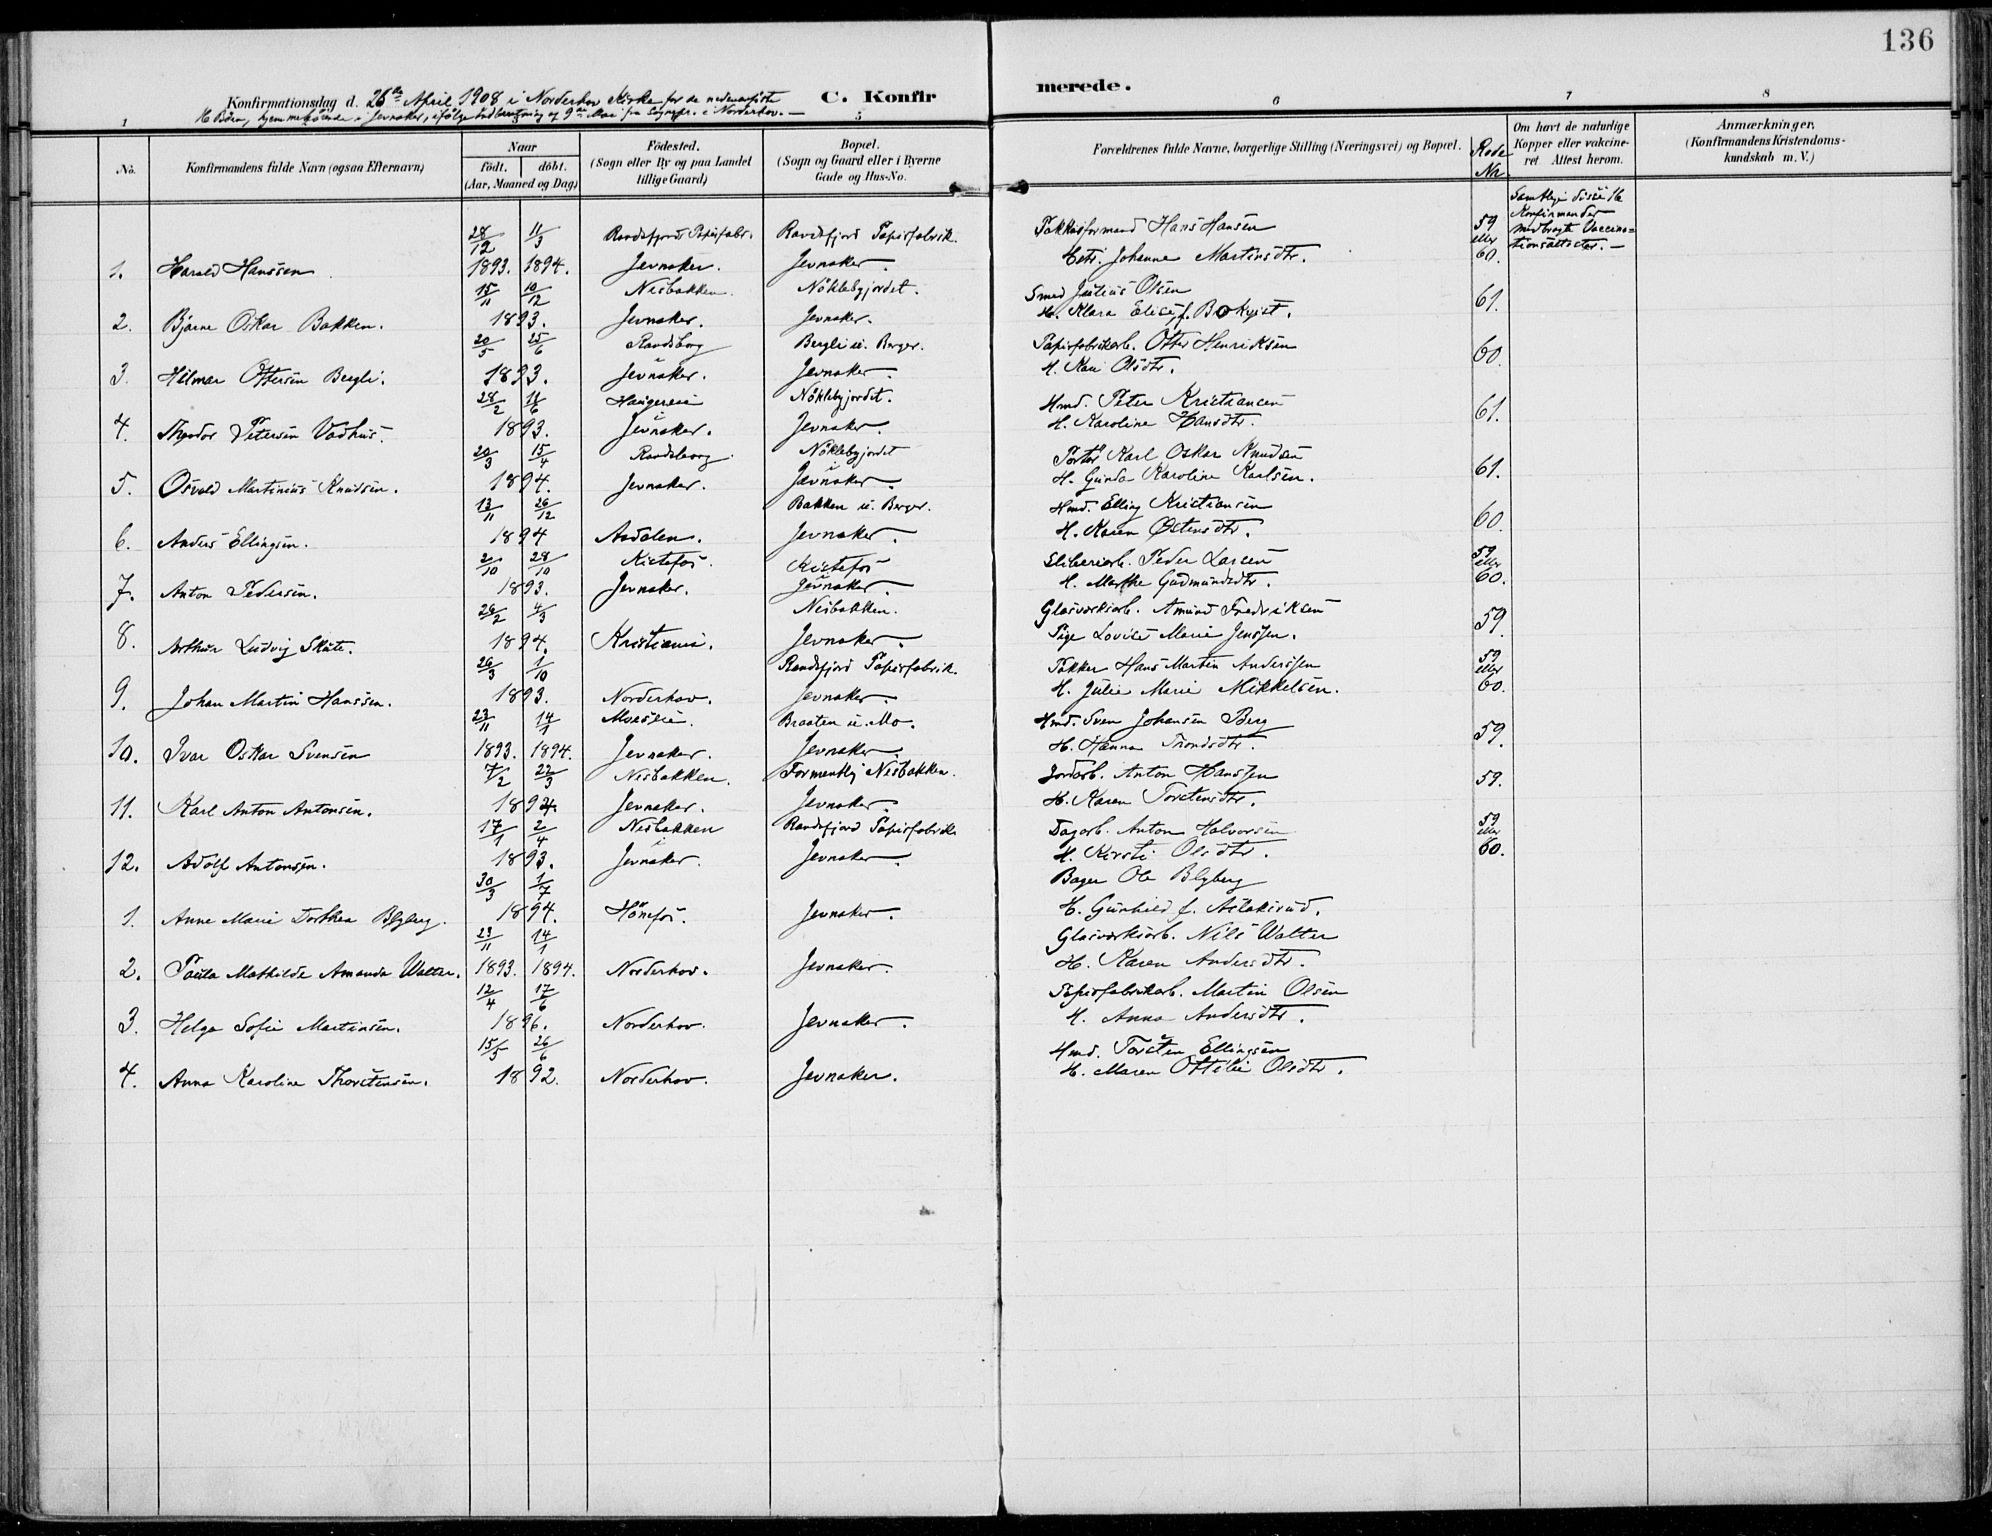 136
C. Konfirmerede.
Konfirmationsdag d. 26de April 1908 i Norderhov Kirke for de nedenanførte
16 Børn, hjemmehørende i Jevnaker, ifølge Indberetning af 9de Mai fra Sognepr. i Norderhov. —
1 5 6 7 8
No. Konfirmandens fulde Navn (ogsaa Efternavn) Naar födt. döbt. (Aar, Maaned og Dag) Födested. (Sogn eller By og paa Landet tillige Gaard) Bopæl. (Sogn og Gaard eller i Byerne Gade og Hus-No. Forældrenes fulde Navne, borgerlige Stilling (Næringsvei) og Bopæl. Rode Nr. Om havt de naturlige Kopper eller vakcineret. Attest herom. Anmærkninger, (Konfirmandens Kristendomskundskab m. V.)
Samtlige disse 16 Konfirmander medbragte Vaccinationsattester. —
28/12 11/3 Randsfjords Papirfabr. Randsfjord Papirfabrik. Pakkisformand Hans Hansen 59 eller
1. Harald Hanssen 1893. 1894. Jevnaker. Jevnaker. Johanne Martinsdtr. 60.
15/11 10/12 Nesbakken. Nöklebyjordet. Smed Julius Olsen 61.
2. Bjarne Oskar Bakken. 1893. Jevnaker. Jevnaker. H. Klara Elise f. Bokvist.
20/5 25/6 Randsborg Bergli u. Berger. Papirfabrikarb. Otter Henriksen 60.
3. Hilmar Ottersen Bergli. 1893. Jevnaker. Jevnaker. H. Kari Olsdtr.
28/2 11/6 Haugereie Nöklebyjordet. Hmd. Peter Kristiansen 61.
4. Theodor Petersen Vadhus. 1893. Jevnaker. Jevnaker. H. Karoline Hansdtr.
20/3 15/4 Randsborg. Nöklebyjordet Portör Karl Oskar Knudsen 61.
5. Osvald Martinius Knudsen. 1894. Jevnaker. Jævnaker. H. Gunda Karoline Karlsen.
13/11 26/12 Bakken u. Berger. Hmd. Elling Kristiansen 60.
6. Anders Ellingsen. 1894 Aadalen. Jevnaker. H. Karen Østensdtr.
2/10 28/10 Kistefos. Kistefos Sliberiarb. Peder Larsen 59 eller
7. Anton Pedersen. 1893. Jevnaker. Jevnaker. H. Marthe Gudmundsdtr. 60.
26/2 4/3 Nesbakken. Glasværksarb. Amund Fredriksen 59.
8. Arthur Ludvig Skute. 1894. Kristiania. Jevnaker. Pige Lovise Marie Jenssen.
26/3 1/10 Randsfjord Papirfabrik. Pakker Hans Martin Anderssen 59 eller
9. Johan Martin Hanssen. 1893. Norderhov. Jevnaker. H. Julie Marie Mikkelsen. 60.
23/11 14/1 Moeseie. Braaten u. Mo. Hmd. Sven Johansen Berg 59.
10. Ivar Oskar Svensen 1893. 1894. Jevnaker. Jevnaker. H. Hanna Trondsdtr.
7/2 22/3 Nesbakken. Formentlig Nesbakken. Jordarb. Anton Hanssen 59.
11. Karl Anton Antonsen. 1894. Jevnaker. Jevnaker. H. Karen Torstensdtr.
17/1 2/4 Nesbakken Randsfjord Papirfabrik. Dagarb. Anton Halvorsen 59 eller
12. Adolf Antonsen. 1893. Jevnaker. Jevnaker. H. Kirsti Olsdtr. 60.
30/3 1/7 Bager Ole Blyberg
1. Anne Marie Dorthea Blyberg. 1894. Hönefos. Jevnaker. H. Gunhild f. Aslaksrud.
23/11 14/1 Glasværksarb. Nils Walter
2. Paula Mathilde Amanda Walter. 1893. 1894. Norderhov. Jevnaker. H. Karen Andersdtr.
12/4 17/6 Papirfabrikarb. Martin Olsen
3. Helga Sofie Martinsen. 1896. Norderhov. Jevnaker. H. Anna Andersdtr.
15/5 26/6 Hmd. Torsten Ellingsen
4. Anna Karoline Thorstensen. 1892. Norderhov. Jevnaker. H. Maren Ottilie Olsdtr.